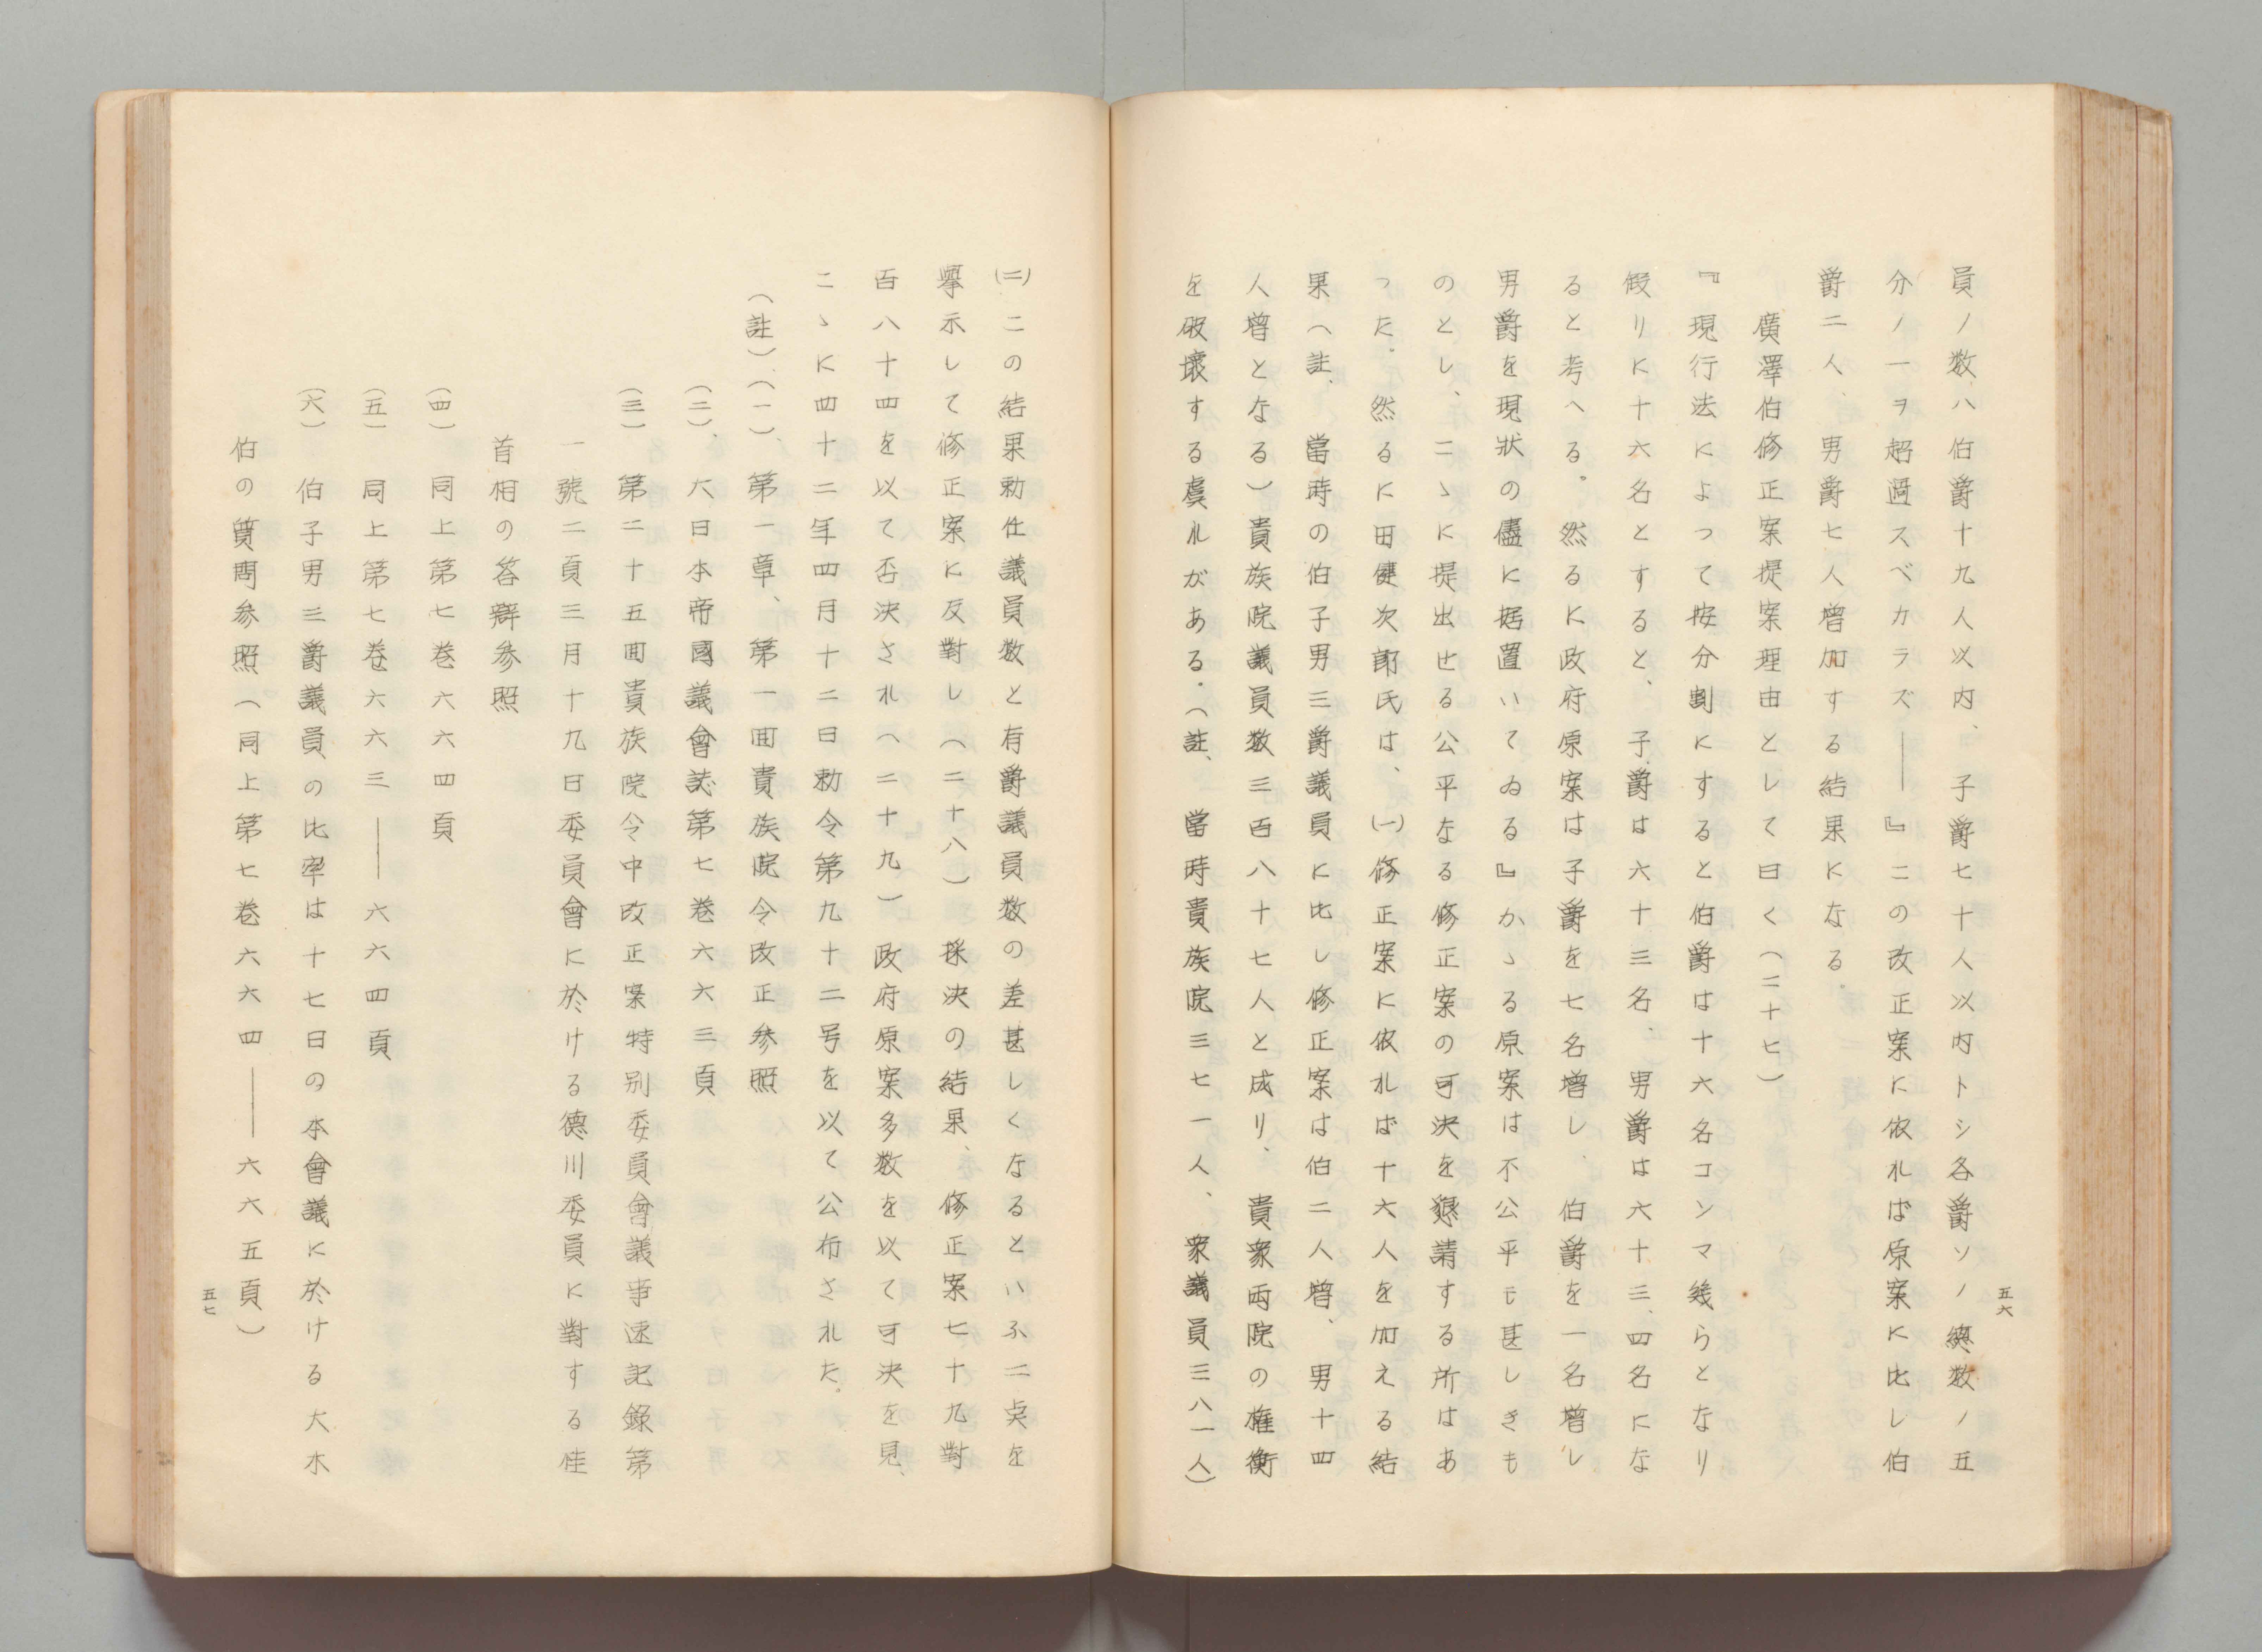 員ノ数ハ伯爵十九人以内、子爵七十人以内トシ各爵ソノ總数ノ五
分ノ一ヲ超過スベカラズ――』この改正案に依れば原案に比し伯
爵二人、男爵七人増加する結果になる。
廣澤伯修正案提案理由として曰く（二十七）
『現行法によって按分割にすると伯爵は十六名コンマ幾らとなり
假りに十六名とすると、子爵は六十三名、男爵は六十三、四名にな
ると考へる。然るに政府原案は子爵を七名増し、伯爵を一名増し
男爵を現狀の儘に据置いてゐる』かゝる原案は不公平も甚しきも
のとし、こゝに提出せる公平なる修正案の可決を懇請する所はあ
った。然るに田健次郎氏は、(一)修正案に依れば十六人を加える結
果（註、當時の伯子男三爵議員に比し修正案は伯二人增、男十四
人增となる）貴族院議員数三百八十七人と成り、貴衆両院の権衡
を破壞する虞れがある。（註、當時貴族院三七一人、衆議員三八一人）
五六
(二)この結果勅任議員数と有爵議員数の差甚しくなるといふ二点を
擧示して修正案に反對し（二十八）採決の結果、修正案七十九對
百八十四を以て否決され（二十九）政府原案多数を以て可決を見、
こゝに四十二年四月十二日勅令第九十二号を以て公布された。
（註）、（一）、第一章、第一回貴族院令改正参照
（二）、大日本帝國議會誌第七巻六六三頁
（三）第二十五回貴族院令中改正案特別委員會議事速記錄第
一號二頁三月十九日委員會に於ける德川委員に對する桂
首相の答辯参照
（四）同上第七巻六六四頁
（五）同上第七巻六六三――六六四頁
（六）伯子男三爵議員の比率は十七日の本會議に於ける大木
伯の質問参照（同上第七巻六六四――六六五頁）
五七